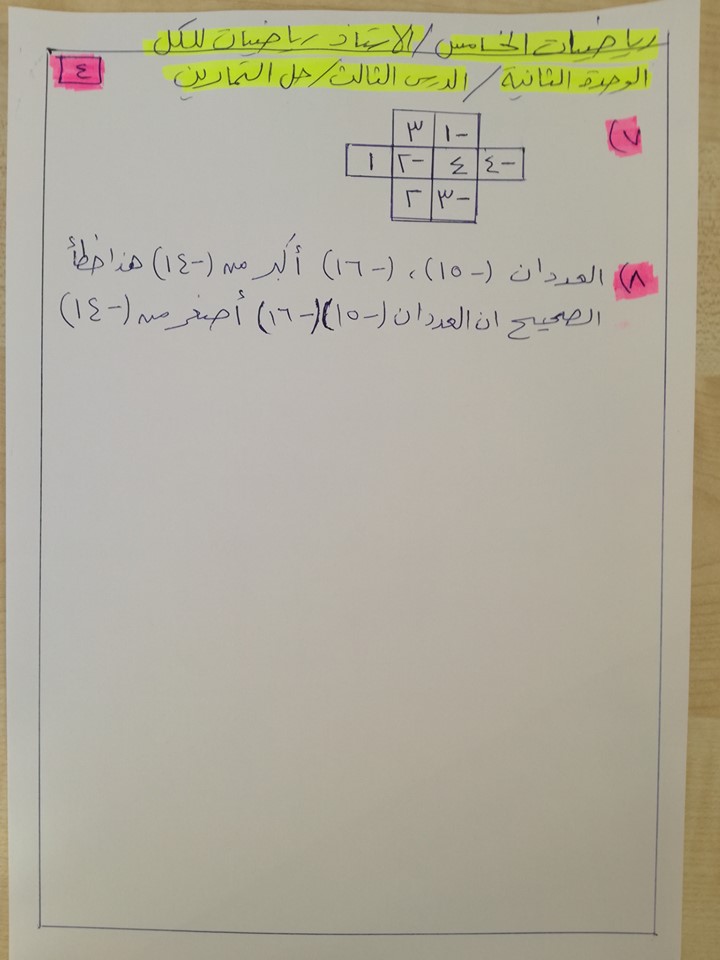 رياضيات الخامس / الاستاذ رياضيات للكل
٤
الوحدة الثانية / الدرس الثالث / حل التمارين
٧)
٣ -١
١ -٢ ٤ -٤
٢ -٣
٨) العددان (-١٥)، (-١٦) أكبر من (-١٤) هذا خطأ
الصحيح ان العددان (-١٥)(-١٦) أصغر من (-١٤)